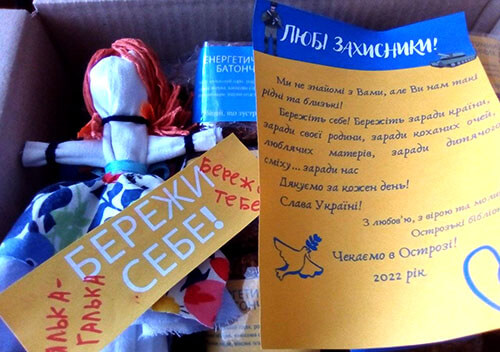 ЕНЕРГЕТИЧ
БАТОНЧ
БЕРЕЖИ
СЕБЕ!
Береж
тебе
ГАЛЬКА
ЛЮБІ ЗАХИСНИКИ!
Ми не знайомі з Вами, але Ви нам такі
рідні та близькі!
Бережіть себе! Бережіть заради країни,
заради своєї родини, заради коханих очей,
люблячих матерів, заради дитячого
сміху... заради нас
Дякуємо за кожен день!
Слава Україні!
З любов'ю, з вірою та моли
Острозькі бібліо
Чекаємо в Острозі!
2022 рік